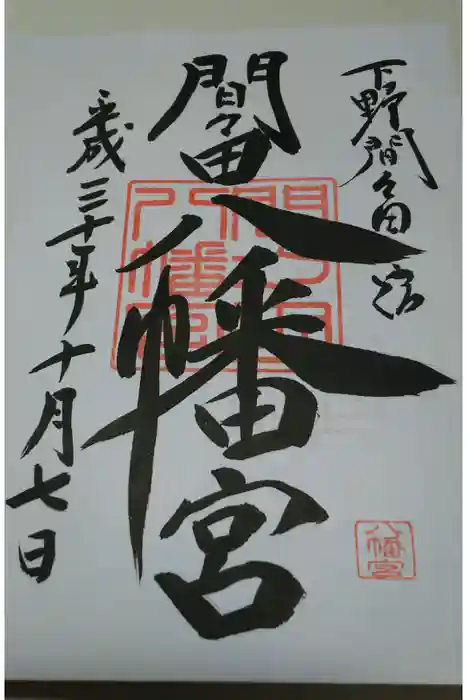 下野間々田宿
間々田八幡宮
平成三十年十月七日
間々田八幡宮
八幡宮